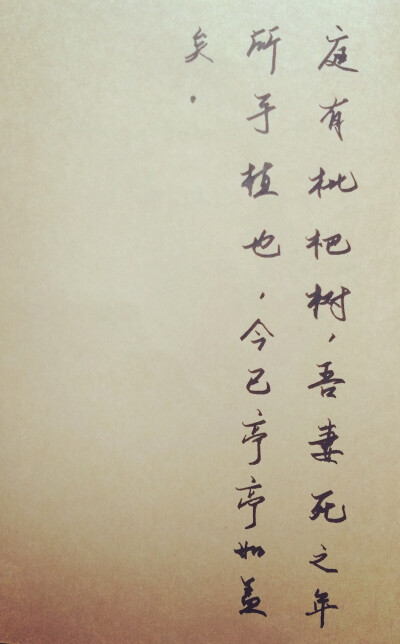 庭有枇杷树，吾妻死之年
所手植也，今已亭亭如盖
矣.